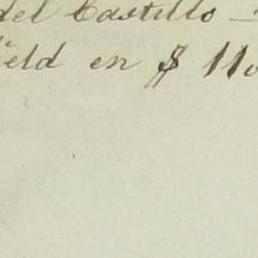 del Castillo —
ield en $ 110